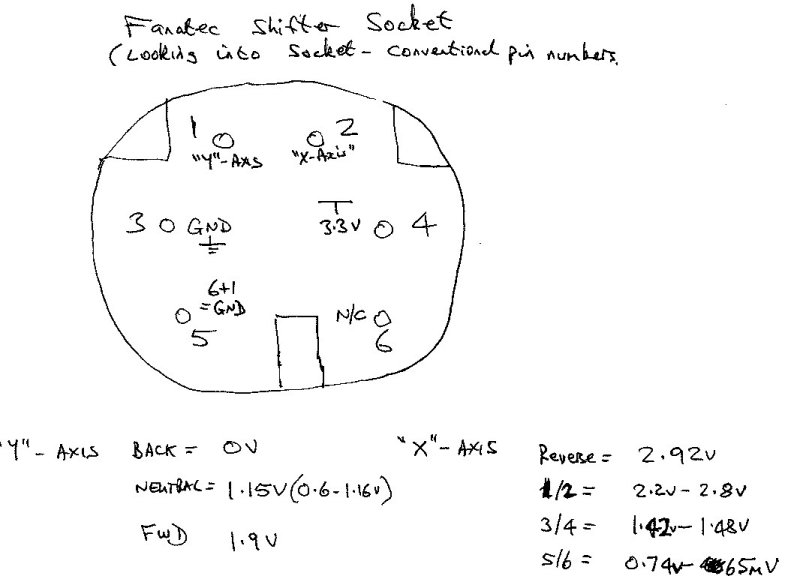 Fanatec Shifter Socket
(Looking into Socket - conventional pin numbers.
1 2
"Y"-Axis "X-Axis"
3 GND 3.3V 4
6+1
=GND N/C
5 6
"Y" - AXIS BACK = 0V
NEUTRAL = 1.15V (0.6-1.16V)
FWD 1.9V
"X" - AXIS Reverse = 2.92V
1/2 = 2.2V - 2.8V
3/4 = 1.42V - 1.48V
5/6 = 0.74V - 65mV